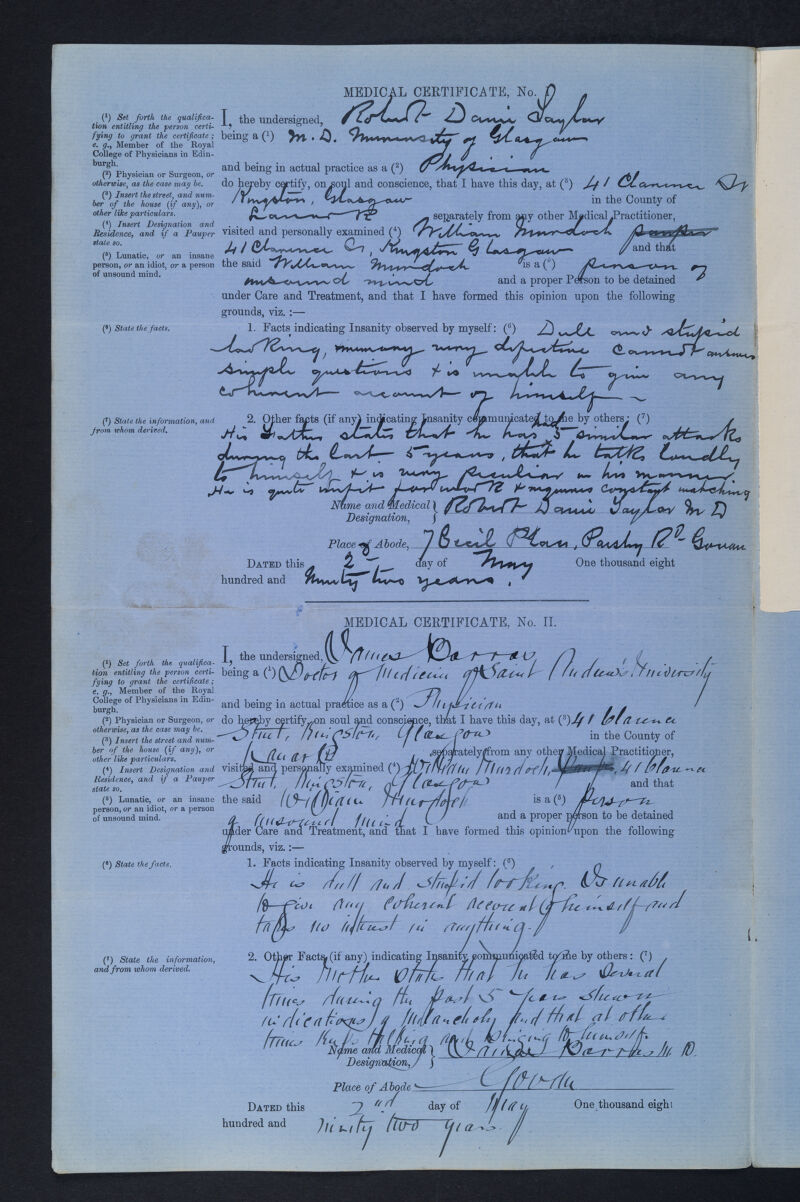 MEDICAL CERTIFICATE, No. I
(¹) Set forth the qualifica-
tion entitling the person certi-
fying to grant the certificate;
e. g., Member of the Royal
College of Physicians in Edin-
burgh.
(²) Physician or Surgeon, or
otherwise, as the case may be.
(³) Insert the street, and num-
ber of the house (if any), or
other like particulars.
(⁴) Insert Designation and
Residence, and if a Pauper
state so.
(⁵) Lunatic, or an insane
person, or an idiot, or a person
of unsound mind.
I, the undersigned, Robert Taylor
being a (¹) M. D. University of Glasgow
and being in actual practice as a (²) Physician
do hereby certify, on soul and conscience, that I have this day, at (³) 41 Clarence St
Kingston, Glasgow in the County of
Lanark separately from any other Medical Practitioner,
visited and personally examined (⁴) William Murdoch pauper
41 Clarence St, Kingston Glasgow and that
the said William Murdoch is a (⁵) person of
unsound mind and a proper Person to be detained
under Care and Treatment, and that I have formed this opinion upon the following
grounds, viz. :—
(⁶) State the facts.
1. Facts indicating Insanity observed by myself: (⁶) Dull and stupid
looking, memory very defective cannot answer
simple questions & is unable to give any
coherent account of himself
(⁷) State the information, and
from whom derived.
2. Other facts (if any) indicating Insanity communicated to me by others: (⁷)
His Father states that he has had 5 similar attacks
during the last 5 years, that he talks loudly
to himself & is very peculiar in his manner
He is quite unfit for work & requires constant watching
Name and Medical Designation, Robert Taylor M D
Place of Abode, 7 Cecil Place, Paisley Rd Govan
DATED this 2 day of May One thousand eight
hundred and Ninety two years.
MEDICAL CERTIFICATE, No. II.
(¹) Set forth the qualifica-
tion entitling the person certi-
fying to grant the certificate;
e. g., Member of the Royal
College of Physicians in Edin-
burgh.
(²) Physician or Surgeon, or
otherwise, as the case may be.
(³) Insert the street and num-
ber of the house (if any), or
other like particulars.
(⁴) Insert Designation and
Residence, and if a Pauper
state so.
(⁵) Lunatic, or an insane
person, or an idiot, or a person
of unsound mind.
I, the undersigned, James Barras
being a (¹) Doctor of Medicine of Saint Andrew's University
and being in actual practice as a (²) Physician
do hereby certify, on soul and conscience, that I have this day, at (³) 41 Clarence
Street, Kingston, Glasgow in the County of
Lanark separately from any other Medical Practitioner,
visited and personally examined (⁴) William Murdoch, 41 Clarence
Street, Kingston, Glasgow and that
the said William Murdoch is a (⁵) person
of unsound mind and a proper person to be detained
under Care and Treatment, and that I have formed this opinion upon the following
grounds, viz. :—
(⁶) State the facts.
1. Facts indicating Insanity observed by myself: (⁶)
He is dull and stupid looking. Is unable
to give any coherent account of himself and
takes no interest in anything.
(⁷) State the information,
and from whom derived.
2. Other Facts (if any) indicating Insanity communicated to me by others: (⁷)
His Mother states that he has several
times during the past 5 years shewn
indications of melancholy and that at other
times keeps talking and singing to himself.
Name and Medical Designation, James Barras M. D.
Place of Abode Govan
DATED this 2nd day of May One thousand eight
hundred and Ninety two years.